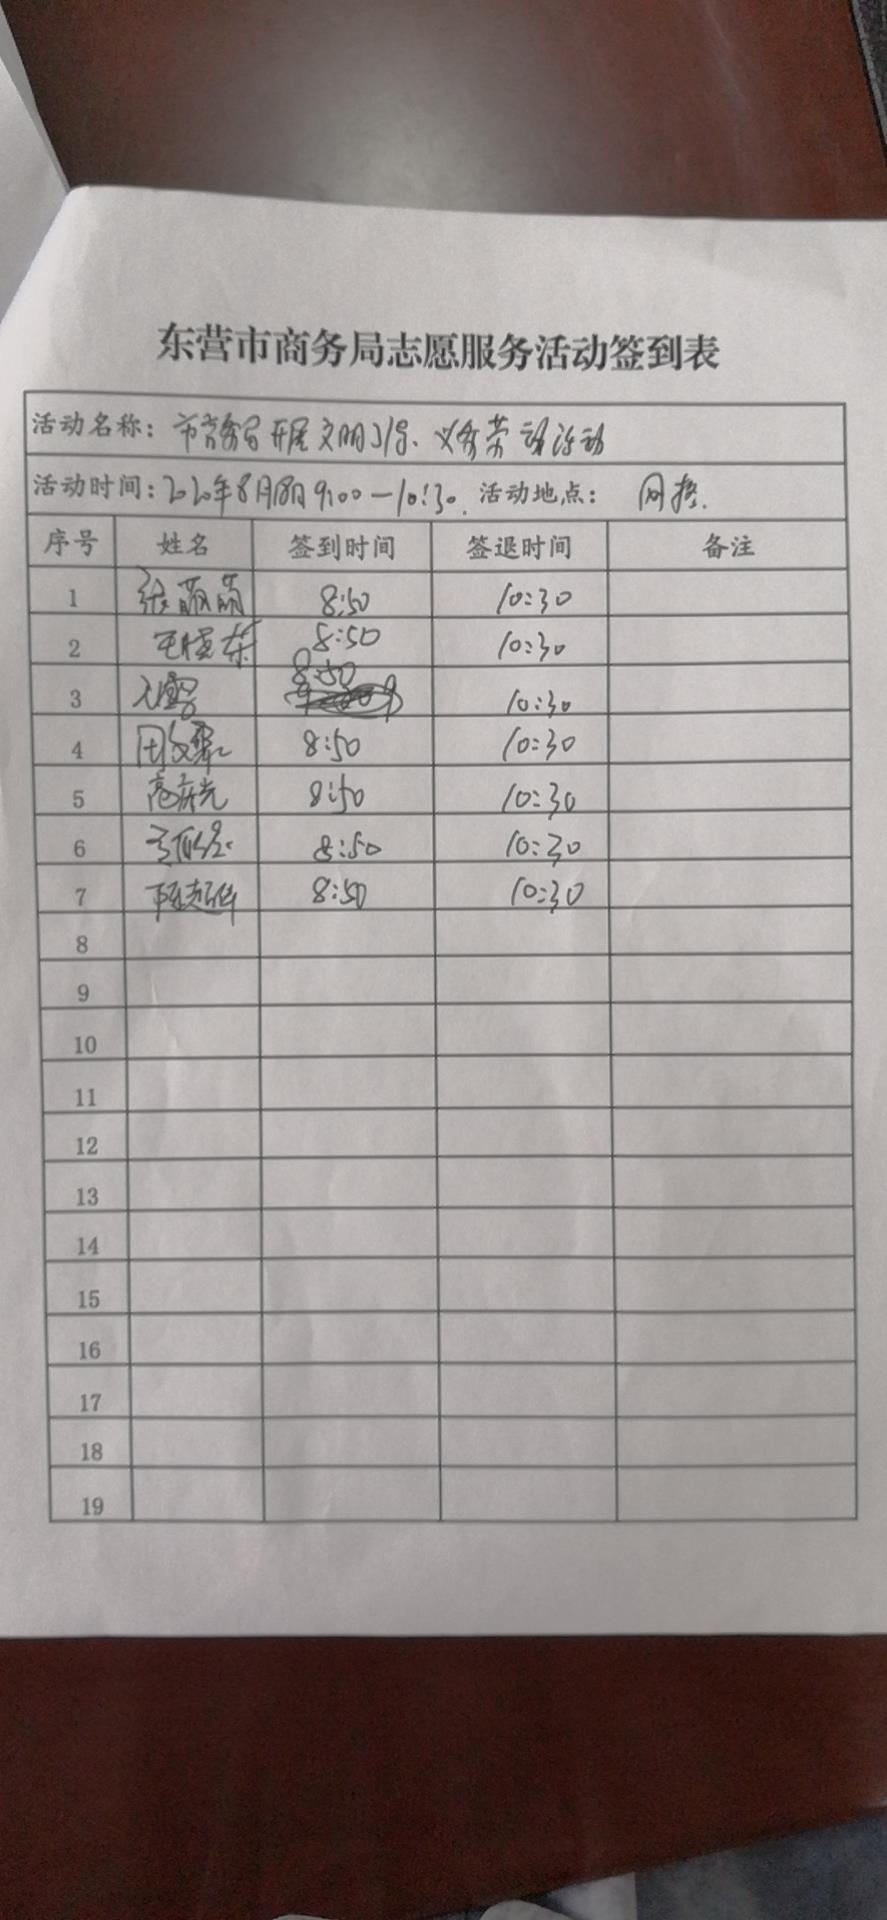 东营市商务局志愿服务活动签到表
活动名称：市商务局开展文明引导、义务劳动活动
活动时间：2020年8月18日9:00—10:30. 活动地点：
序号 姓名 签到时间 签退时间 备注
1 张萌萌 8:50 10:30
2 8:50 10:30
3 8:50 10:30
4 8:50 10:30
5 高庆光 8:50 10:30
6 8:50 10:30
7 陈超 8:50 10:30
8
9
10
11
12
13
14
15
16
17
18
19